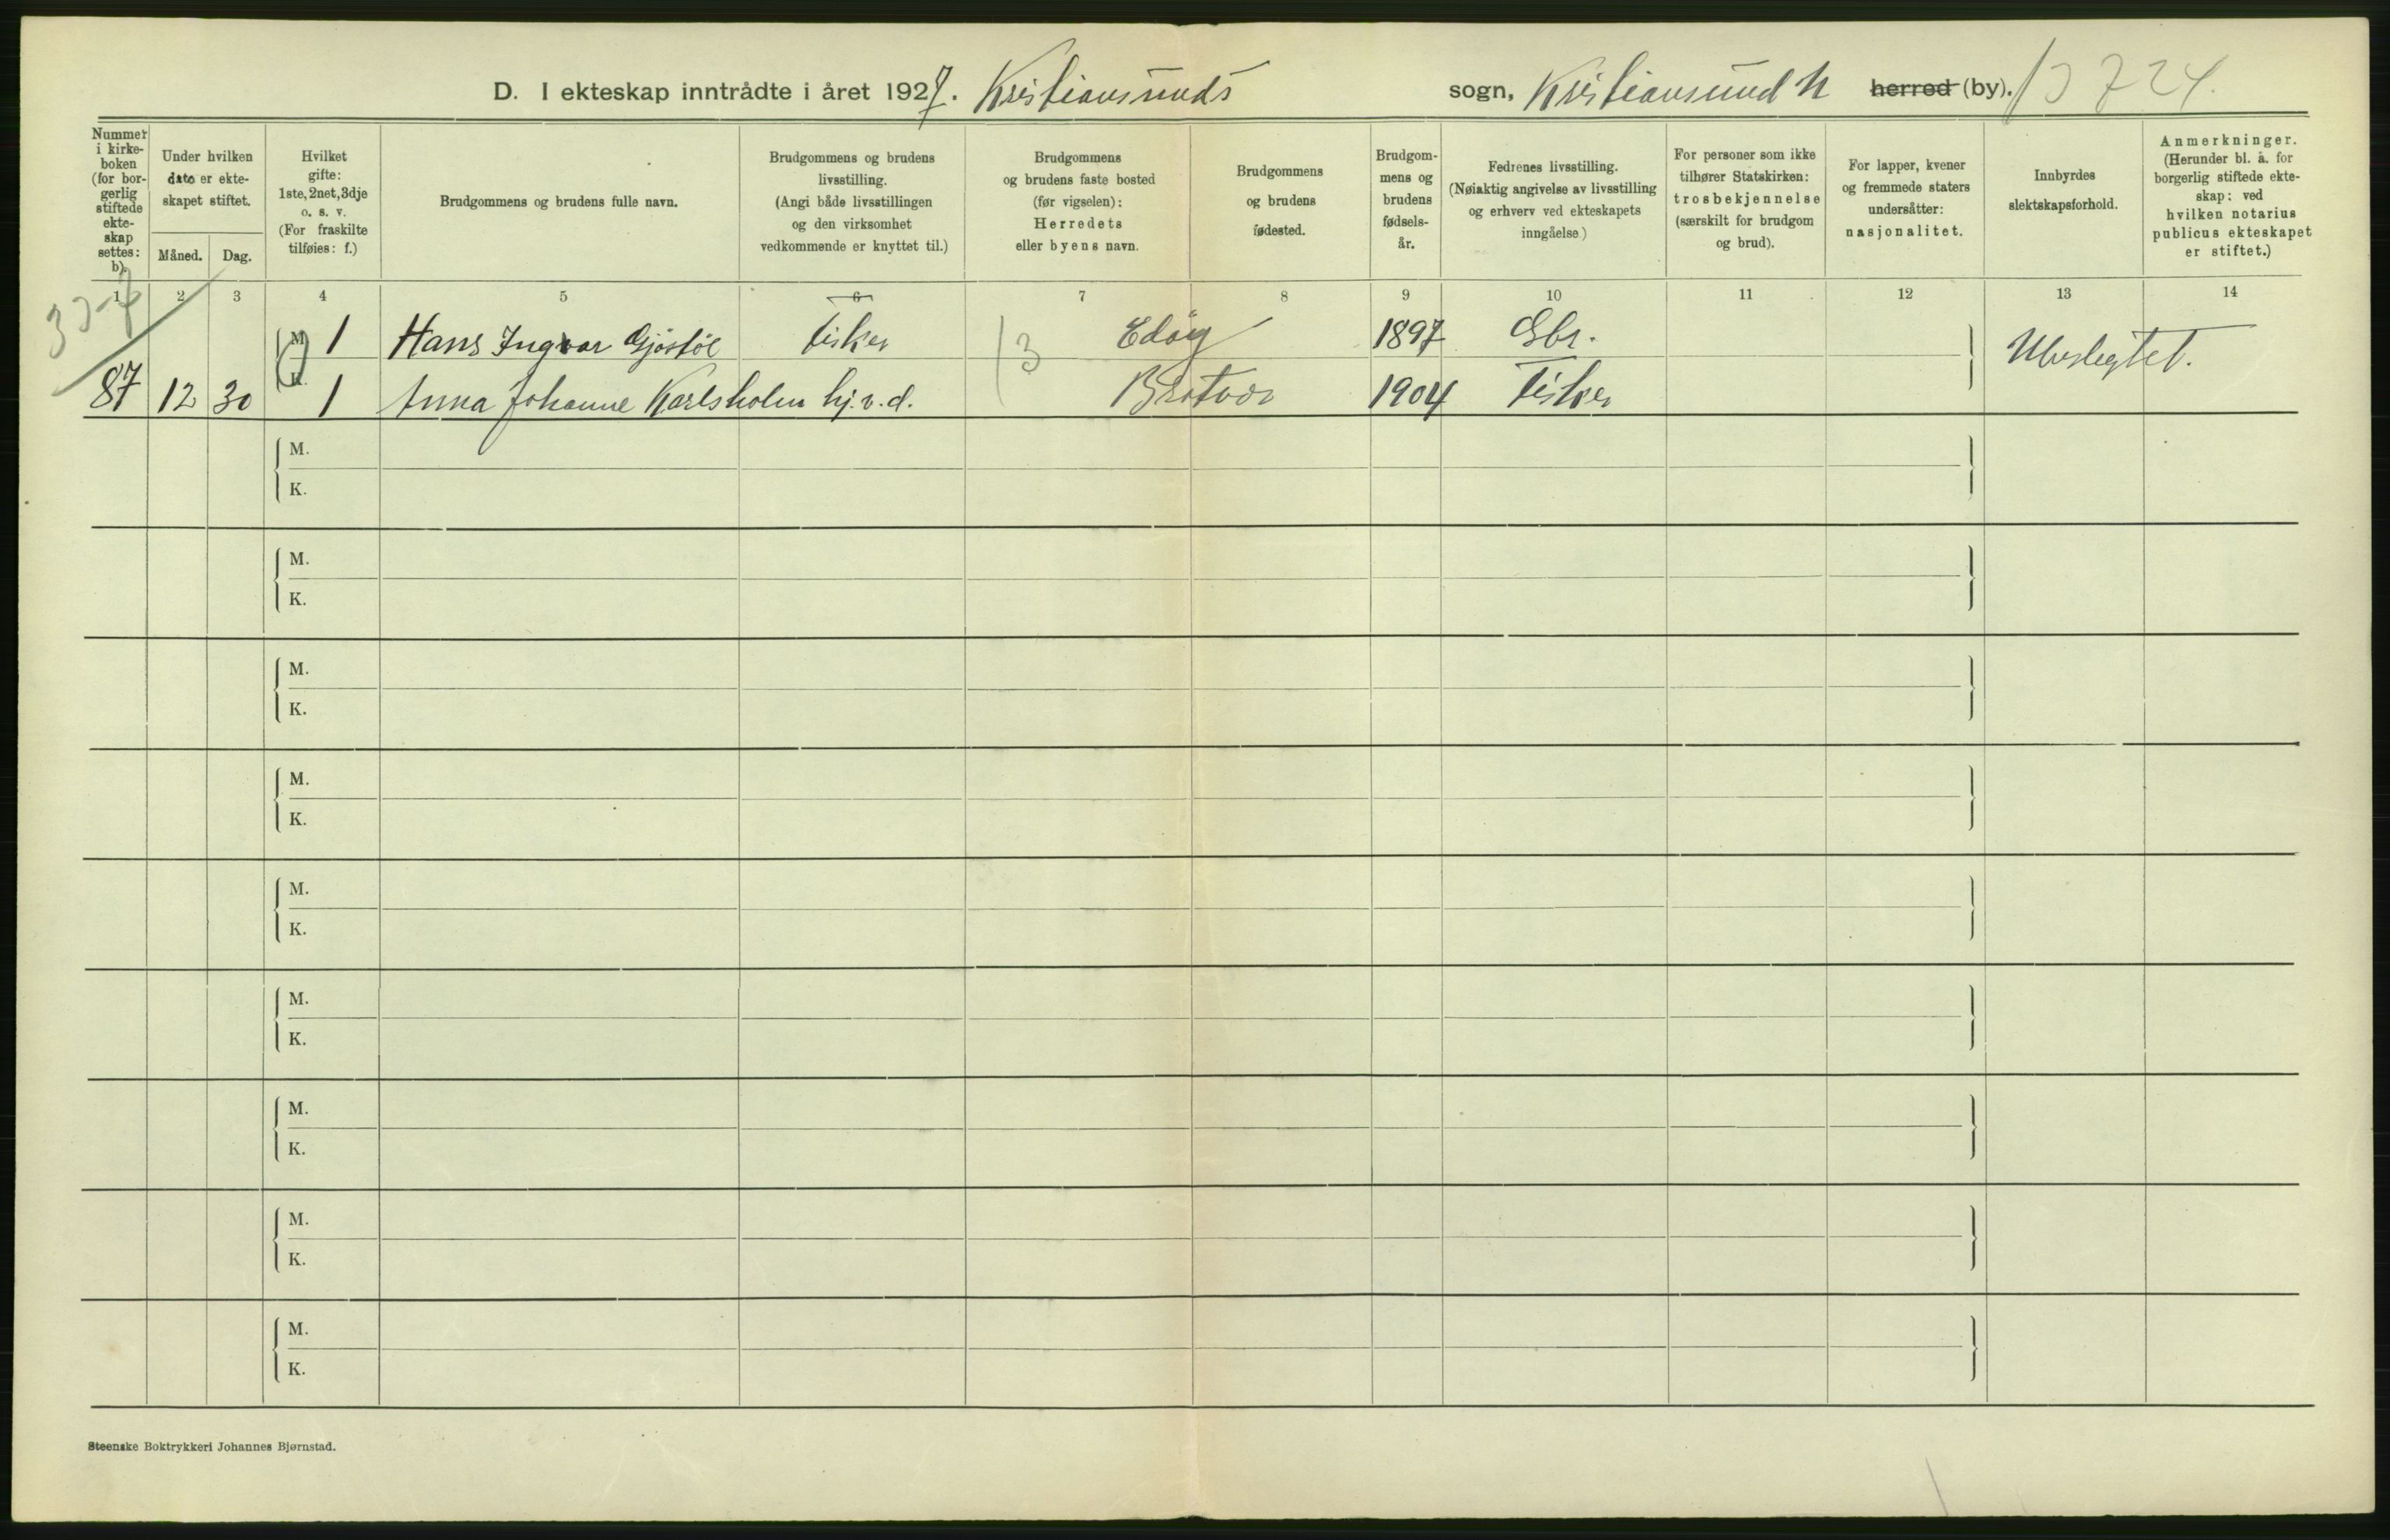 D. I ekteskap inntrådte i året 1927. Kristiansunds sogn, Kristiansund N herred (by).
Nummer i kirke-boken (for bor-gerlig stiftede ekte-skap settes: b).
Under hvilken dato er ekte-skapet stiftet.
Måned. Dag.
Hvilket gifte: 1ste, 2net, 3dje o. s. v. (For fraskilte tilføies: f.)
Brudgommens og brudens fulle navn.
Brudgommens og brudens livsstilling. (Angi både livsstillingen og den virksomhet vedkommende er knyttet til.)
Brudgommens og brudens faste bosted (før vigselen): Herredets eller byens navn.
Brudgommens og brudens fødested.
Brudgom-mens og brudens fødsels-år.
Fedrenes livsstilling. (Nøiaktig angivelse av livsstilling og erhverv ved ekteskapets inngåelse)
For personer som ikke tilhører Statskirken: trosbekjennelse (særskilt for brudgom og brud).
For lapper, kvener og fremmede staters undersåtter: nasjonalitet.
Innbyrdes slektskapsforhold.
Anmerkninger. (Herunder bl. a. for borgerlig stiftede ekte-skap: ved hvilken notarius publicus ekteskapet er stiftet.)
1 2 3 4 5 6 7 8 9 10 11 12 13 14
M. 1 Hans Ingvar Gjøstøl Fisker Edøy 1897 Gbr. Ubeslegtet.
87 12 30 K. 1 Anna Johanne Karlsholm hj.v.d. Bratvær 1904 Fisker
M.
K.
M.
K.
M.
K.
M.
K.
M.
K.
M.
K.
M.
K.
M.
K.
M.
K.
Steenske Boktrykkeri Johannes Bjørnstad.